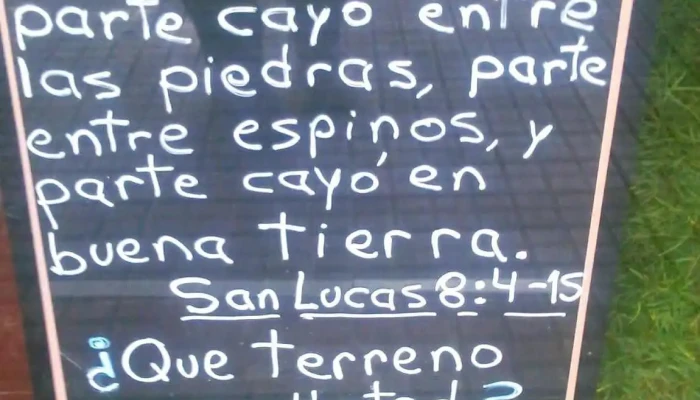 parte cayó entre
las piedras, parte
entre espinos, y
parte cayó en
buena tierra.
San Lucas 8:4-15
¿Que terreno